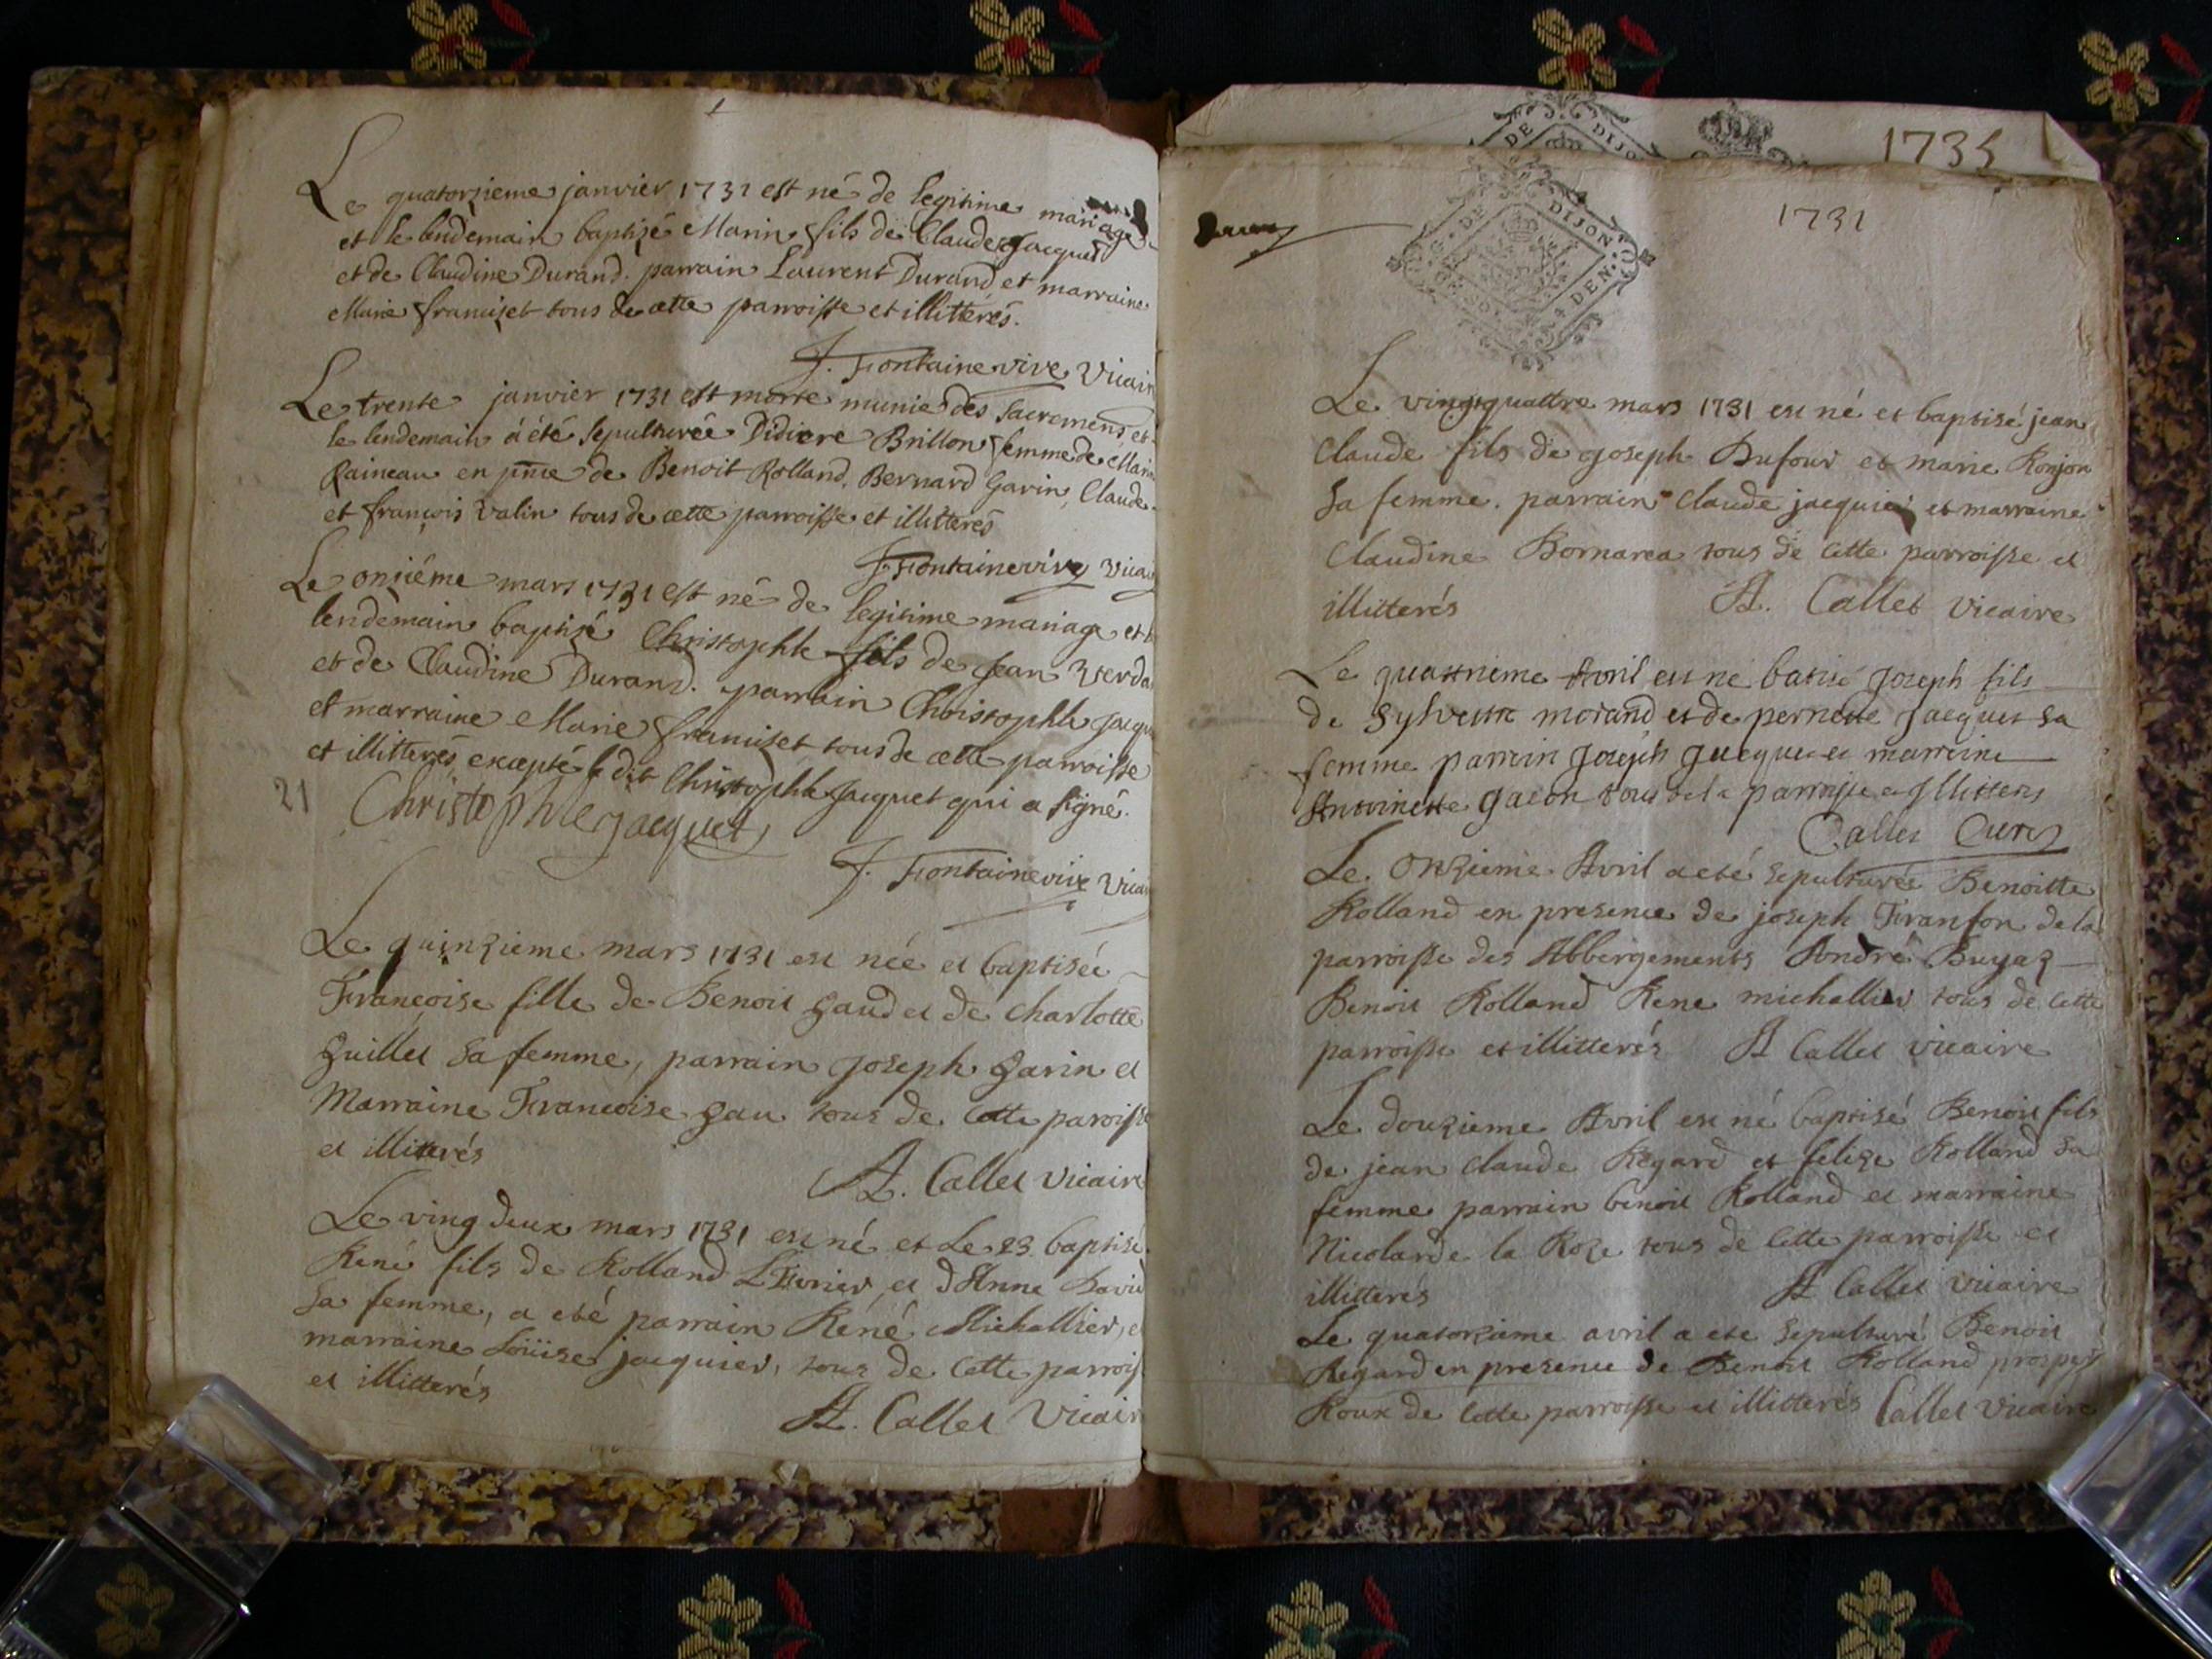 Le quatorzieme janvier 1731 est né de legitime mariage
et le lendemain baptizé Marin fils de Claude Jacquet
et de Claudine Durand. parrain Laurent Durand et marraine
Marie franciset tous de cette parroisse et illitterés.
J. Fontainevive Vicair
Le trente janvier 1731 est morte munie des Sacremens et
le lendemain a été sepulturée Didiere Brillon femme de
Raineau en pnce de Benoit Rolland, Bernard Garin, Claude
et françois Valin tous de cette parroisse et illitterés
J. Fontainevive Vicai
Le onziéme mars 1731 est né de legitime mariage et
lendemain baptizé Christophle fils de Jean
et de Claudine Durand. parrain Christophle Jacqu
et marraine Marie franciset tous de cette parroisse
et illitterés excepté le dit Christophle Jacquet qui a signé.
21
Christophle Jacquet
J. Fontainevive Vicai
Le quinzieme mars 1731 est née et baptisée
Francoise fille de Benoit Gaud et de charlotte
Guillet sa femme, parrain joseph Garin et
Marraine Francoise Gau tous de cette paroisse
et illitterés
A. Callet Vicaire
Le ving deux mars 1731 est né et Le 23 baptisé
René fils de Rolland et d'Anne David
sa femme, a eté parrain René Michallier, e
marraine Loüise jacquier, tous de cette parrois
et illitterés
A. Callet Vicair
1735
DE DIJO
1731
G. DE DIJON
DEN.
Le vingtquattre mars 1731 est né et baptisé jean
Claude fils de joseph Dufour et marie Ronjon
sa femme. parrain Claude jacquier et marraine
Claudine Bornarea tous de cette parroisse et
illitterés A. Callet vicaire
Le quattrieme Avril est né batisé Joseph fils
de Sylvestre morand et de pernette Jacquet sa
femme parrin Joseph Jacquet et marreine
Antoinette gacon tous de la parroisse et Illitters
Callet Curé
Le Onzieme Avril a eté sepulturée Benoitte
Rolland en presence de joseph Franfon de la
parroisse des Abbergements André Buyaz
Benoit Rolland Rene michallier tous de cette
parroisse et illitterés A Callet vicaire
Le douzieme Avril est né baptisé Benoit fils
de jean Claude Regard et felize Rolland sa
femme parrain benoit Rolland et marraine
Nicolarde la Roze tous de cette parroisse et
illitterés A Callet vicaire
Le quatorzieme avril a ete sepulturé Benoit
Regard en presence de Benoit Rolland prosper
Roux de cette parroisse et illitterés Callet vicaire